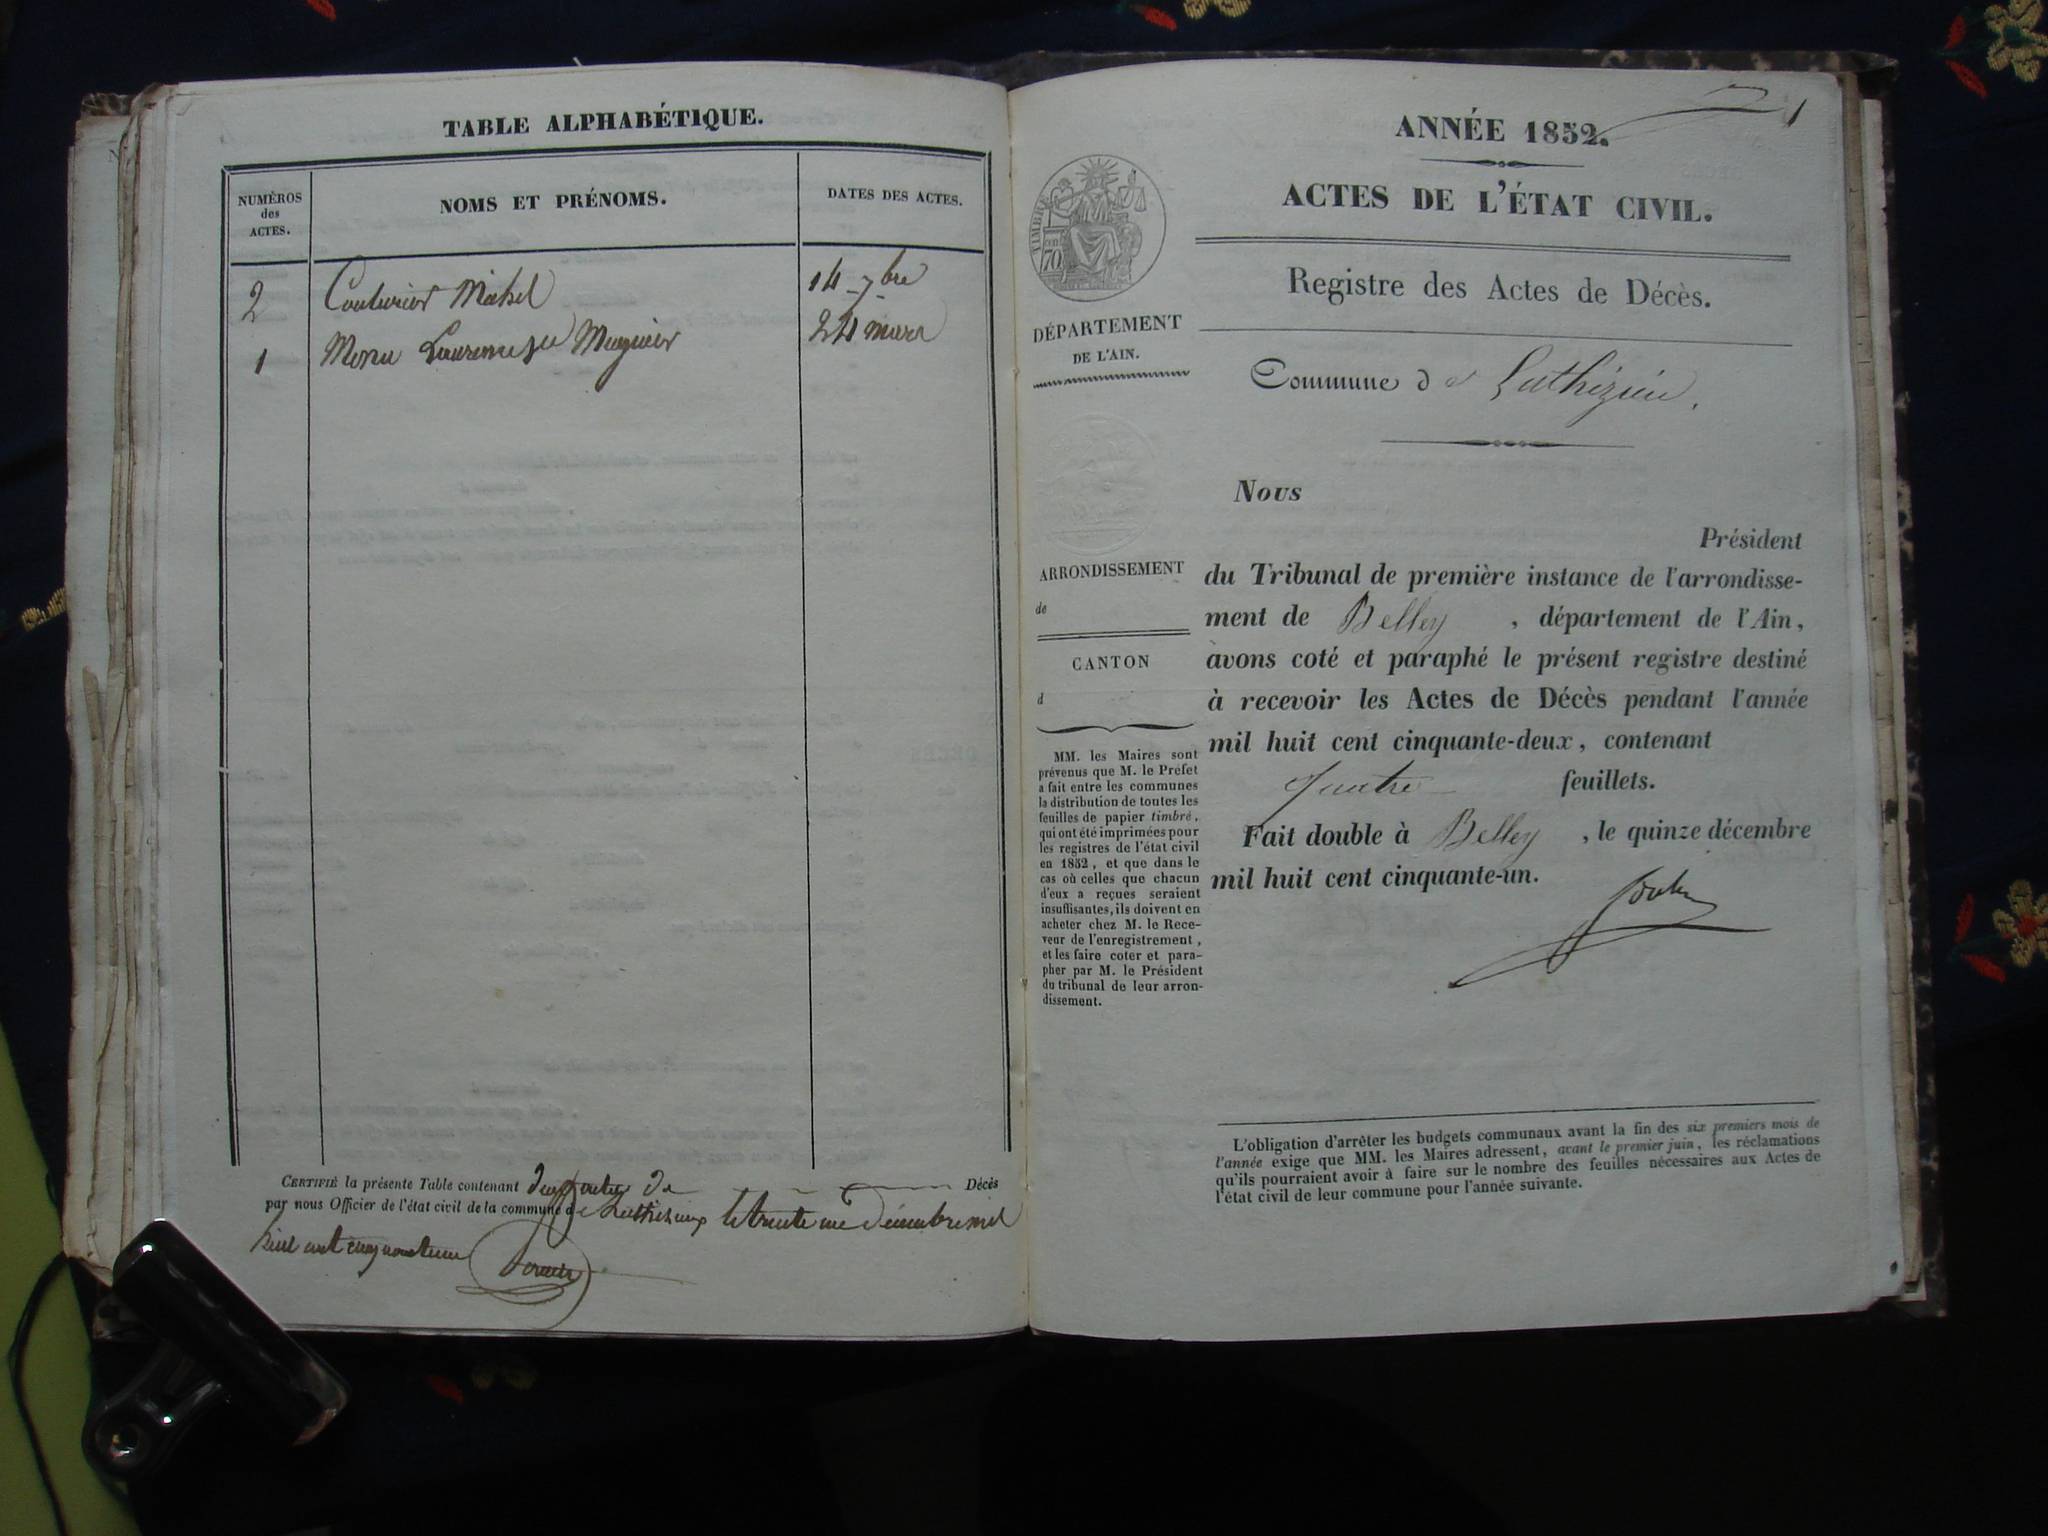 TABLE ALPHABÉTIQUE.
NUMÉROS
des
ACTES.
NOMS ET PRÉNOMS.
DATES DES ACTES.
2 Couturier Michel 14 7bre
1 Monu Mugnier 24 mars
CERTIFIÉ la présente Table contenant deux actes de Décès
par nous Officier de l'état civil de la commune de le trente un décembre mil
huit cent cinquante
ANNÉE 1852.
1
ACTES DE L'ÉTAT CIVIL.
Registre des Actes de Décès.
TIMBRE
70
DÉPARTEMENT
DE L'AIN.
Commune de Luthézieu.
ARRONDISSEMENT
de
CANTON
d
MM. les Maires sont
prévenus que M. le Préfet
a fait entre les communes
la distribution de toutes les
feuilles de papier timbré,
qui ont été imprimées pour
les registres de l'état civil
en 1852, et que dans le
cas où celles que chacun
d'eux a reçues seraient
insuffisantes, ils doivent en
acheter chez M. le Rece-
veur de l'enregistrement,
et les faire coter et para-
pher par M. le Président
du tribunal de leur arron-
dissement.
Nous
Président
du Tribunal de première instance de l'arrondisse-
ment de Belley, département de l'Ain,
avons coté et paraphé le présent registre destiné
à recevoir les Actes de Décès pendant l'année
mil huit cent cinquante-deux, contenant
quatre feuillets.
Fait double à Belley, le quinze décembre
mil huit cent cinquante-un.
L'obligation d'arrêter les budgets communaux avant la fin des six premiers mois de
l'année exige que MM. les Maires adressent, avant le premier juin, les réclamations
qu'ils pourraient avoir à faire sur le nombre des feuilles nécessaires aux Actes de
l'état civil de leur commune pour l'année suivante.